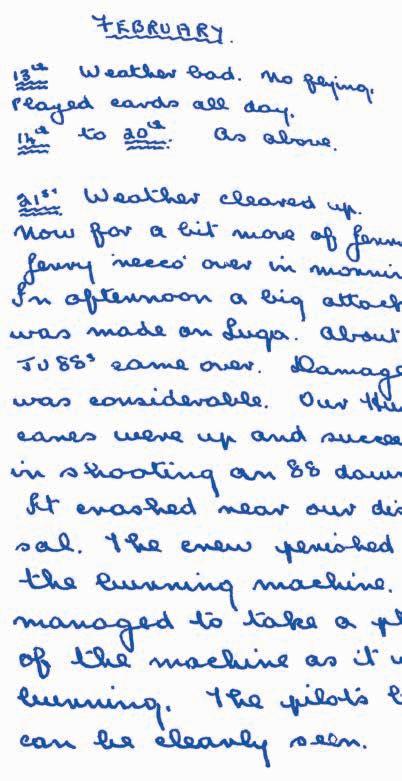 FEBRUARY.
13th Weather bad. No flying.
Played cards all day.
14th to 20th. As above.
21st. Weather cleared up.
Now for a bit more of Jerry
Jerry 'recco' over in mornin
In afternoon a big attack
was made on Luqa. About
JU 88s came over. Damage
was considerable. Our Hur
canes were up and succee
in shooting an 88 down
It crashed near our dis
sal. The crew perished
the burning machine.
managed to take a ph
of the machine as it w
burning. The pilot's b
can be clearly seen.